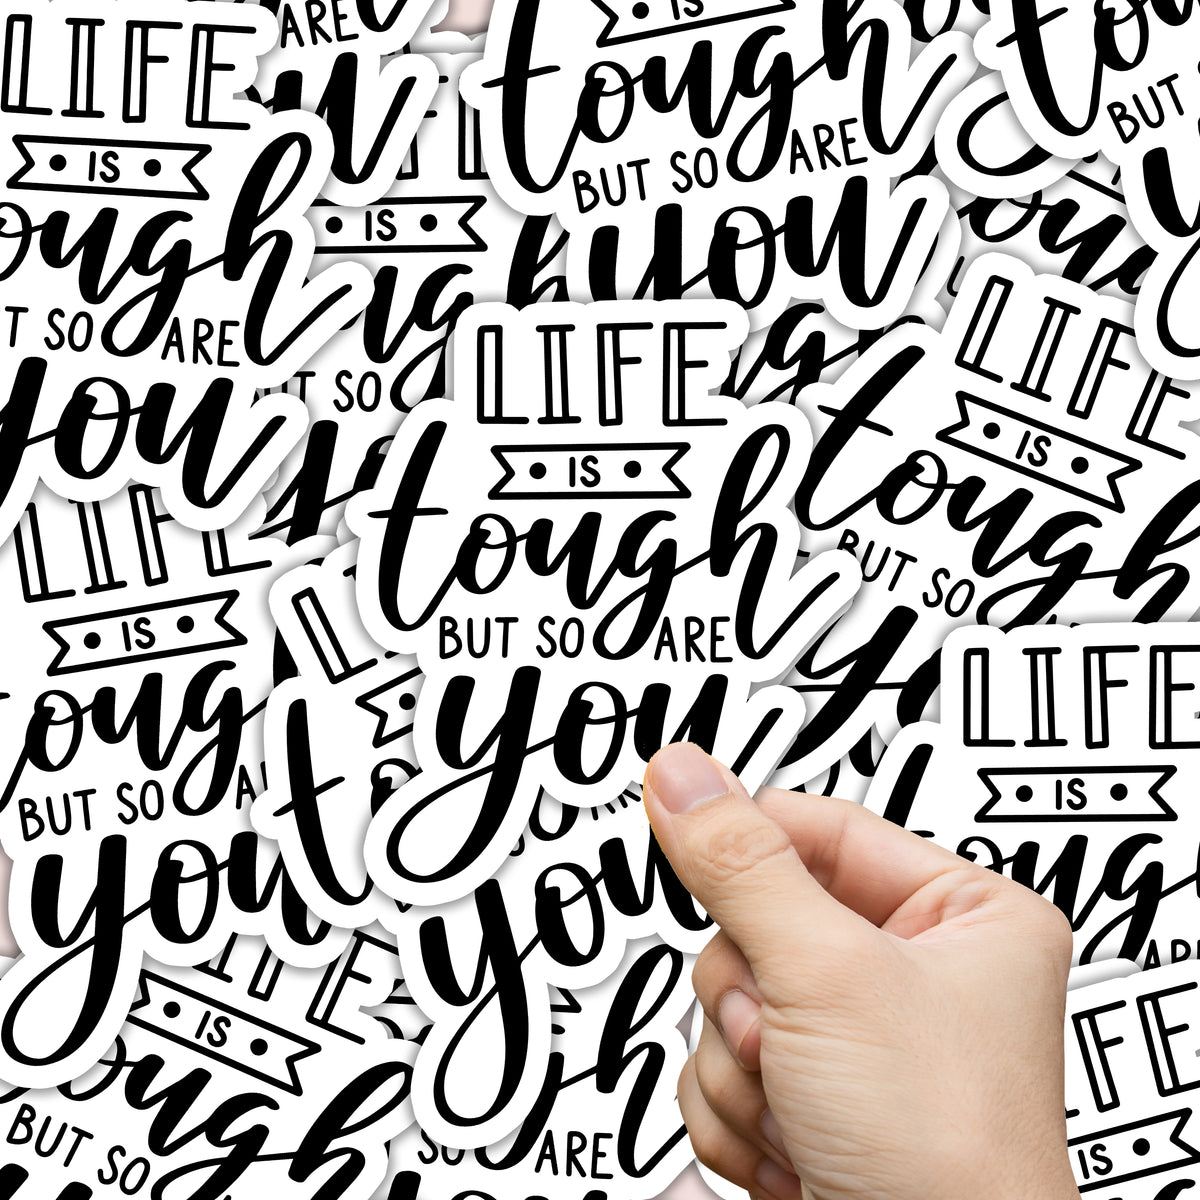 LIFE
IS
tough
BUT SO ARE
you